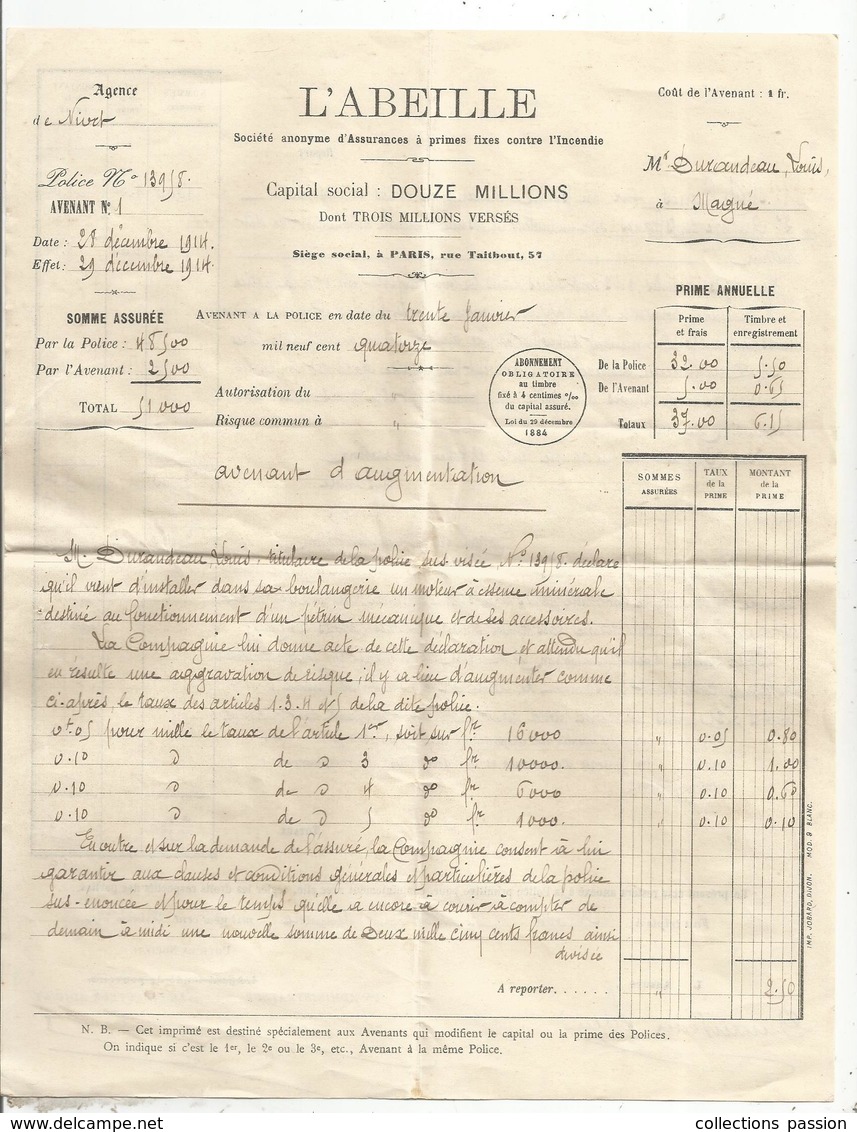 Agence
de Niort
Police N° 13958.
AVENANT N° 1
Date : 28 décembre 1914.
Effet : 29 décembre 1914.
L'ABEILLE
Société anonyme d'Assurances à primes fixes contre l'Incendie
Capital social : DOUZE MILLIONS
Dont TROIS MILLIONS VERSÉS
Siège social, à PARIS, rue Taitbout, 57
Coût de l'Avenant : 1 fr.
Mr Durandeau, Louis,
à Magné
SOMME ASSURÉE
Par la Police : 48500
Par l'Avenant : 2500
TOTAL 51000
AVENANT A LA POLICE en date du trente Janvier
mil neuf cent quatorze
Autorisation du "
Risque commun à "
ABONNEMENT
OBLIGATOIRE
au timbre
fixé à 4 centimes °/oo
du capital assuré.
Loi du 29 décembre
1884
PRIME ANNUELLE
Prime et frais Timbre et enregistrement
De la Police 32.00 5.50
De l'Avenant 5.00 0.65
Totaux 37.00 6.15
avenant d'augmentation
SOMMES ASSURÉES TAUX de la PRIME MONTANT de la PRIME
M. Durandeau, Louis, titulaire de la police sus visée N° 13958. déclare
qu'il vient d'installer dans sa boulangerie un moteur à essence minérale
destiné au fonctionnement d'un pétrin mécanique et de ses accessoires.
La Compagnie lui donne acte de cette déclaration et attendu qu'il
en résulte une aggravation de risque, il y a lieu d'augmenter comme
ci-après le taux des articles 1.3.4 et 5 de la dite police.
0f.05 pour mille le taux de l'article 1er, soit, sur fr 16000 " 0.05 0.80
0.10 d° de d° 3 d° fr 10000. " 0.10 1.00
0.10 d° de d° 4 d° fr 6000 " 0.10 0.60
0.10 d° de d° 5 d° fr 1000. " 0.10 0.10
En outre et sur la demande de l'assuré, la Compagnie consent à lui
garantir aux clauses et conditions générales et particulières de la police
sus-énoncée et pour le temps qu'elle a encore à courir à compter de
demain à midi une nouvelle somme de Deux mille cinq cents francs ainsi
divisée
A reporter...... " 2.50
N. B. — Cet imprimé est destiné spécialement aux Avenants qui modifient le capital ou la prime des Polices.
On indique si c'est le 1er, le 2e ou le 3e, etc., Avenant à la même Police.
IMP. JOBARD, DIJON. MOD. 9 BLANC.
collections passion